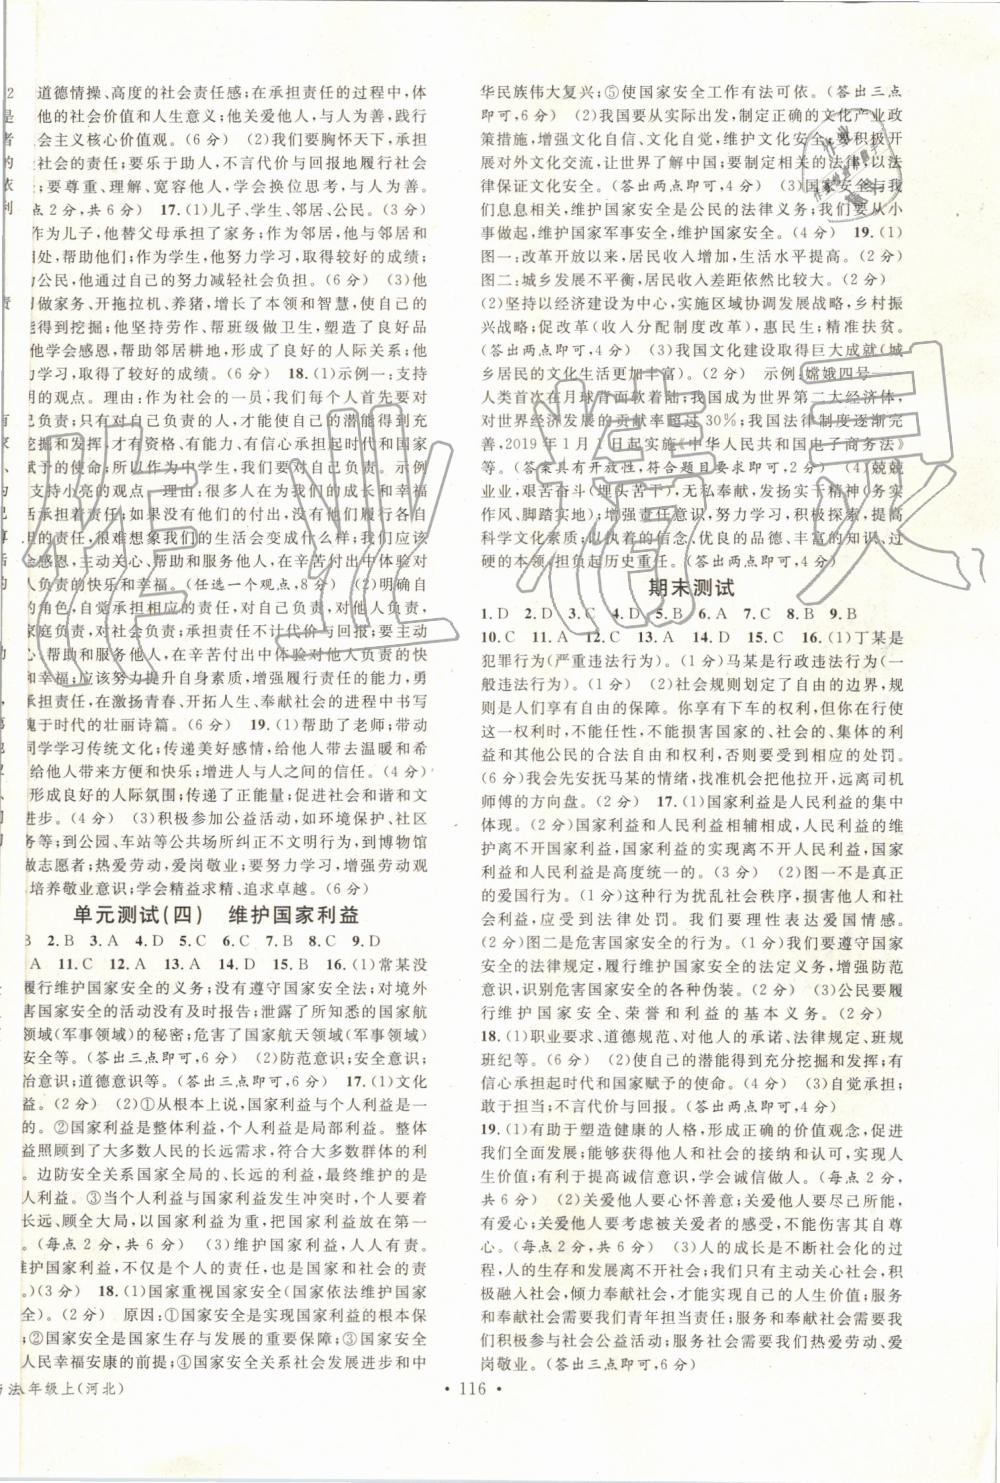 道德情操、高度的社会责任感;在承担责任的过程中,体
他的社会价值和人生意义;他关爱他人,与人为善,践行
会主义核心价值观。(6分) (2)我们要胸怀天下,承担
社会的责任;要乐于助人,不言代价与回报地履行社会
;要尊重、理解、宽容他人,学会换位思考,与人为善。
点2分,共6分) 17.(1)儿子、学生、邻居、公民。(3分)
作为儿子,他替父母承担了家务;作为邻居,他与邻居
相处,帮助过他们;作为学生,他努力学习,取得较好的成绩;
公民,他通过自己的努力减轻社会负担。(6分) (3)他
做家务、开拖拉机、养猪,增长了本领和智慧,使自己的
能得到挖掘;他坚持劳作、帮班级做卫生,塑造了良好品
他学会感恩,帮助邻居耕地,形成了良好的人际关系;他
力学习,取得了较好的成绩。(6分) 18.(1)示例一:支持
明的观点。理由:作为社会的一员,我们每个人首先要对
己负责;只有对自己负责的人,才能使自己的潜能得到充
挖掘和发挥,才有资格、有能力、有信心承担起时代和国家
赋予的使命;所以作为中学生,我们要对自己负责。示例
支持小亮的观点。理由:很多人在为我们的成长和幸福
活承担着责任;没有他们的付出,没有他们履行各自对社
的责任,很难想象我们的生活会变成什么样;我们应该
会感恩,主动关心、帮助和服务他人,在辛苦付出中体验对
人负责的快乐和幸福。(任选一个观点,8分) (2)明确自
的角色,自觉承担相应的责任,对自己负责、对他人负责、
家庭负责、对社会负责;承担责任不计代价与回报;要主动
心、帮助和服务他人,在辛苦付出中体验对他人负责的快
福;应该努力提升自身素质,增强履行责任的能力,勇
承担责任,在激扬青春、开拓人生、奉献社会的进程中书写
愧于时代的壮丽诗篇。(6分) 19.(1)帮助了老师;带动
同学学习传统文化;传递美好感情,给他人带去温暖和希
给他人带来方便和快乐;增进人与人之间的信任。(4分)
形成良好的人际氛围;传递了正能量;促进社会和谐和文
进步。(4分) (3)积极参加公益活动,如环境保护、社区
务等;到公园、车站等公共场所纠正不文明行为,到博物馆
做志愿者;热爱劳动,爱岗敬业;要努力学习,增强劳动观
培养敬业意识;学会精益求精、追求卓越。(6分)
单元测试(四) 维护国家利益
B 2.B 3.A 4.D 5.C 6.C 7.B 8.C 9.D
A 11.C 12.A 13.A 14.D 15.B 16.(1)常某没
履行维护国家安全的义务;没有遵守国家安全法;对境外
害国家安全的活动没有及时报告;泄露了所知悉的国家航
领域(军事领域)的秘密;危害了国家航天领域(军事领域)
安全等。(答出三点即可,6分) (2)防范意识;安全意识;
治意识;道德意识等。(答出三点即可,6分) 17.(1)文化
益。(2分) (2)①从根本上说,国家利益与个人利益是一
的。②国家利益是整体利益,个人利益是局部利益。整体
益照顾到了大多数人民的长远需求,符合大多数群体的利
。边防安全关系国家全局的、长远的利益,最终维护的是
利益。③当个人利益与国家利益发生冲突时,我们要着
长远、顾全大局,以国家利益为重,把国家利益放在第一
。(每点2分,共6分) (3)维护国家利益,人人有责。
维护国家利益,不仅是个人的责任,也是我们共同的责任。
)(3分) 18.(1)国家重视国家安全(国家依法维护国家
全)。(2分) 原因:①国家安全是实现国家利益的根本保
;②国家安全是国家生存与发展的重要保障;③国家安全
人民幸福安康的前提;④国家安全关系社会发展进步和中
华民族伟大复兴;⑤使国家安全工作有法可依。(答出三点
即可,6分) (2)从实际出发,制定正确的文化产业政
策措施,增强文化自信、文化自觉,维护文化安全;积极开
展对外文化交流,让世界了解中国;制定相关的法律,以法
律保证文化安全。(答出两点即可,4分) (3)国家安全与我
们息息相关,维护国家安全是公民的法律义务;我们要从小
事做起,维护国家军事安全,维护国家安全。(4分) 19.(1)
图一:改革开放以来,居民收入增加,生活水平提高。(2分)
图二:城乡发展不平衡,居民收入差距依然很大。(2分)
(2)坚持以经济建设为中心,实施区域协调发展战略,乡村振
兴战略;促改革(收入分配制度改革),惠民生;精准扶贫。
(答出两点即可,4分) (3)我国文化建设取得巨大成就(城
乡居民的文化生活更加丰富)。(2分) 示例:嫦娥四号——
人类首次在月球背面软着陆;我国成为世界第二大经济体,
对世界经济发展的贡献率超过30%;我国法律制度逐渐完
善,2019年1月1日起实施《中华人民共和国电子商务法》
等。(答案具有开放性,符合题目要求即可,2分) (4)兢兢
业业,艰苦奋斗(埋头苦干),无私奉献,发扬实干精神(务实
作风、脚踏实地);增强责任意识,勇于担当;积极探索,提高
科学文化素质;以执着的信念、优良的品德、丰富的知识、过
硬的本领,担负起历史重任。(答出两点即可,4分)
期末测试
1.D 2.D 3.C 4.D 5.B 6.A 7.C 8.B 9.B
10.C 11.A 12.C 13.A 14.D 15.C 16.(1)丁某是
犯罪行为(严重违法行为)。(2分)马某是行政违法行为(一
般违法行为)。(2分) (2)社会规则划定了自由的边界,规
则是人们享有自由的保障。你享有下车的权利,但你在行使
这一权利时,不能任性,不能损害国家的、社会的、集体的利
益和其他公民的合法自由和权利,否则要受到相应的处罚。
(6分)我会先安抚马某的情绪,找准机会把他拉开,远离司机
师傅的方向盘。(2分) 17.(1)国家利益是人民利益的集中
体现。(2分)国家利益和人民利益相辅相成,人民利益的维
护离不开国家利益,国家利益的实现离不开人民利益,国家
利益和人民利益是高度统一的。(2分) (2)图一不是真正
的爱国行为。(1分)这种行为扰乱社会秩序,损害他人和社
会利益,应受到法律处罚。我们要理性表达爱国情感。
(2分)图二是危害国家安全的行为。(1分)我们要遵守国家
安全的法律规定,履行维护国家安全的法定义务,增强防范
意识,识别危害国家安全的各种伪装。(2分) (3)公民要履
行维护国家安全、荣誉和利益的基本义务。(2分)
18.(1)职业要求、道德规范、对他人的承诺、法律规定、班规
班纪等。(6分) (2)使自己的潜能得到充分挖掘和发挥;有
信心承担起时代和国家赋予的使命。(4分) (3)自觉承担;
敢于担当;不言代价与回报。(答出两点即可,4分)
19.(1)有助于塑造健康的人格,形成正确的价值观念,促进
我们全面发展;能够获得他人和社会的接纳和认可,实现人
生价值;有利于提高诚信意识,学会诚信做人。(每点2分,共
6分) (2)关爱他人要心怀善意;关爱他人要尽己所能,有
心;关爱他人要考虑被关爱者的感受,不能伤害其自尊
心。(每点2分,共6分) (3)人的成长是不断社会化的过
程,人的生存和发展离不开社会;我们只有主动关心社会,积
极融入社会,倾力奉献社会,才能实现自己的人生价值;服务
和奉献社会需要我们青年担当责任;服务和奉献社会需要我
们积极参与社会公益活动;服务社会需要我们热爱劳动、爱
岗敬业。(答出三点即可,6分)
法八年级上(河北)
· 116 ·
作业精灵